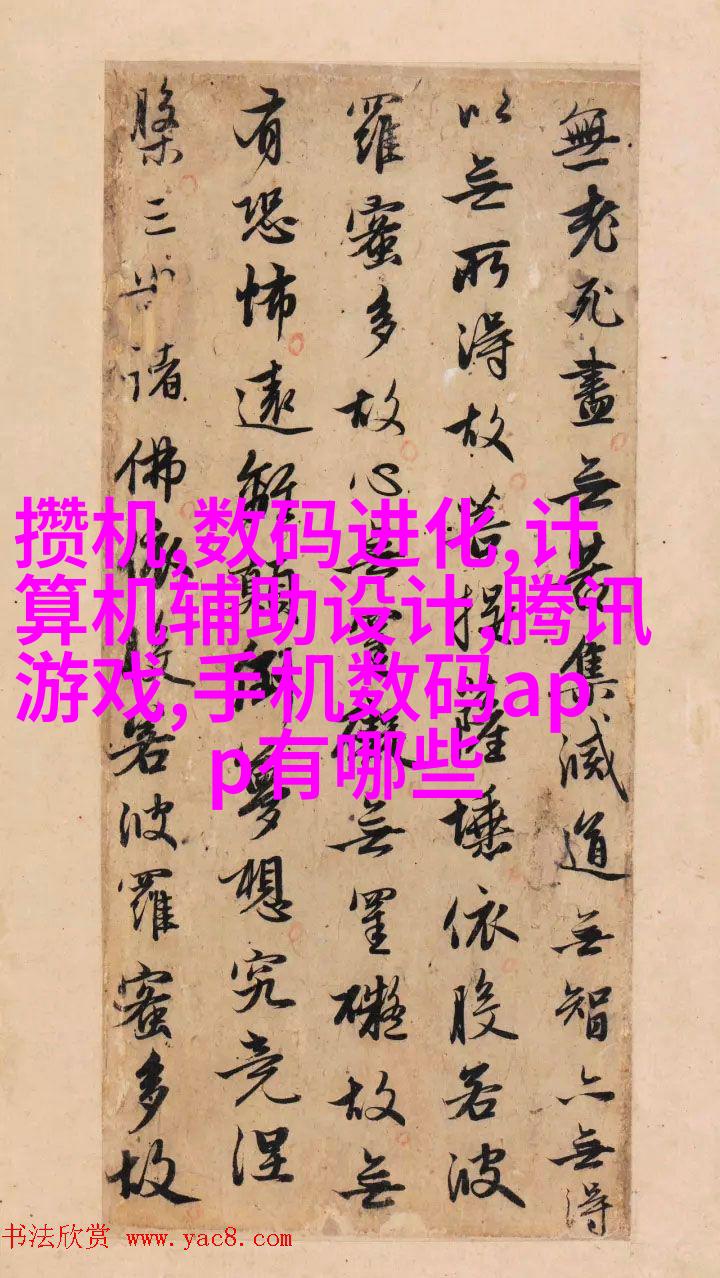 無老死盡无苦集滅道无智亦無得
以无所得故菩提薩埵依般若波
羅蜜多故心無罣礙無罣礙故無
有恐怖遠離顛倒夢想究竟涅
槃三世諸佛依般若波羅蜜多故
攒机,数码进化,计
算机辅助设计,腾讯
游戏,手机数码ap
p有哪些
书法欣赏 www.yac8.com